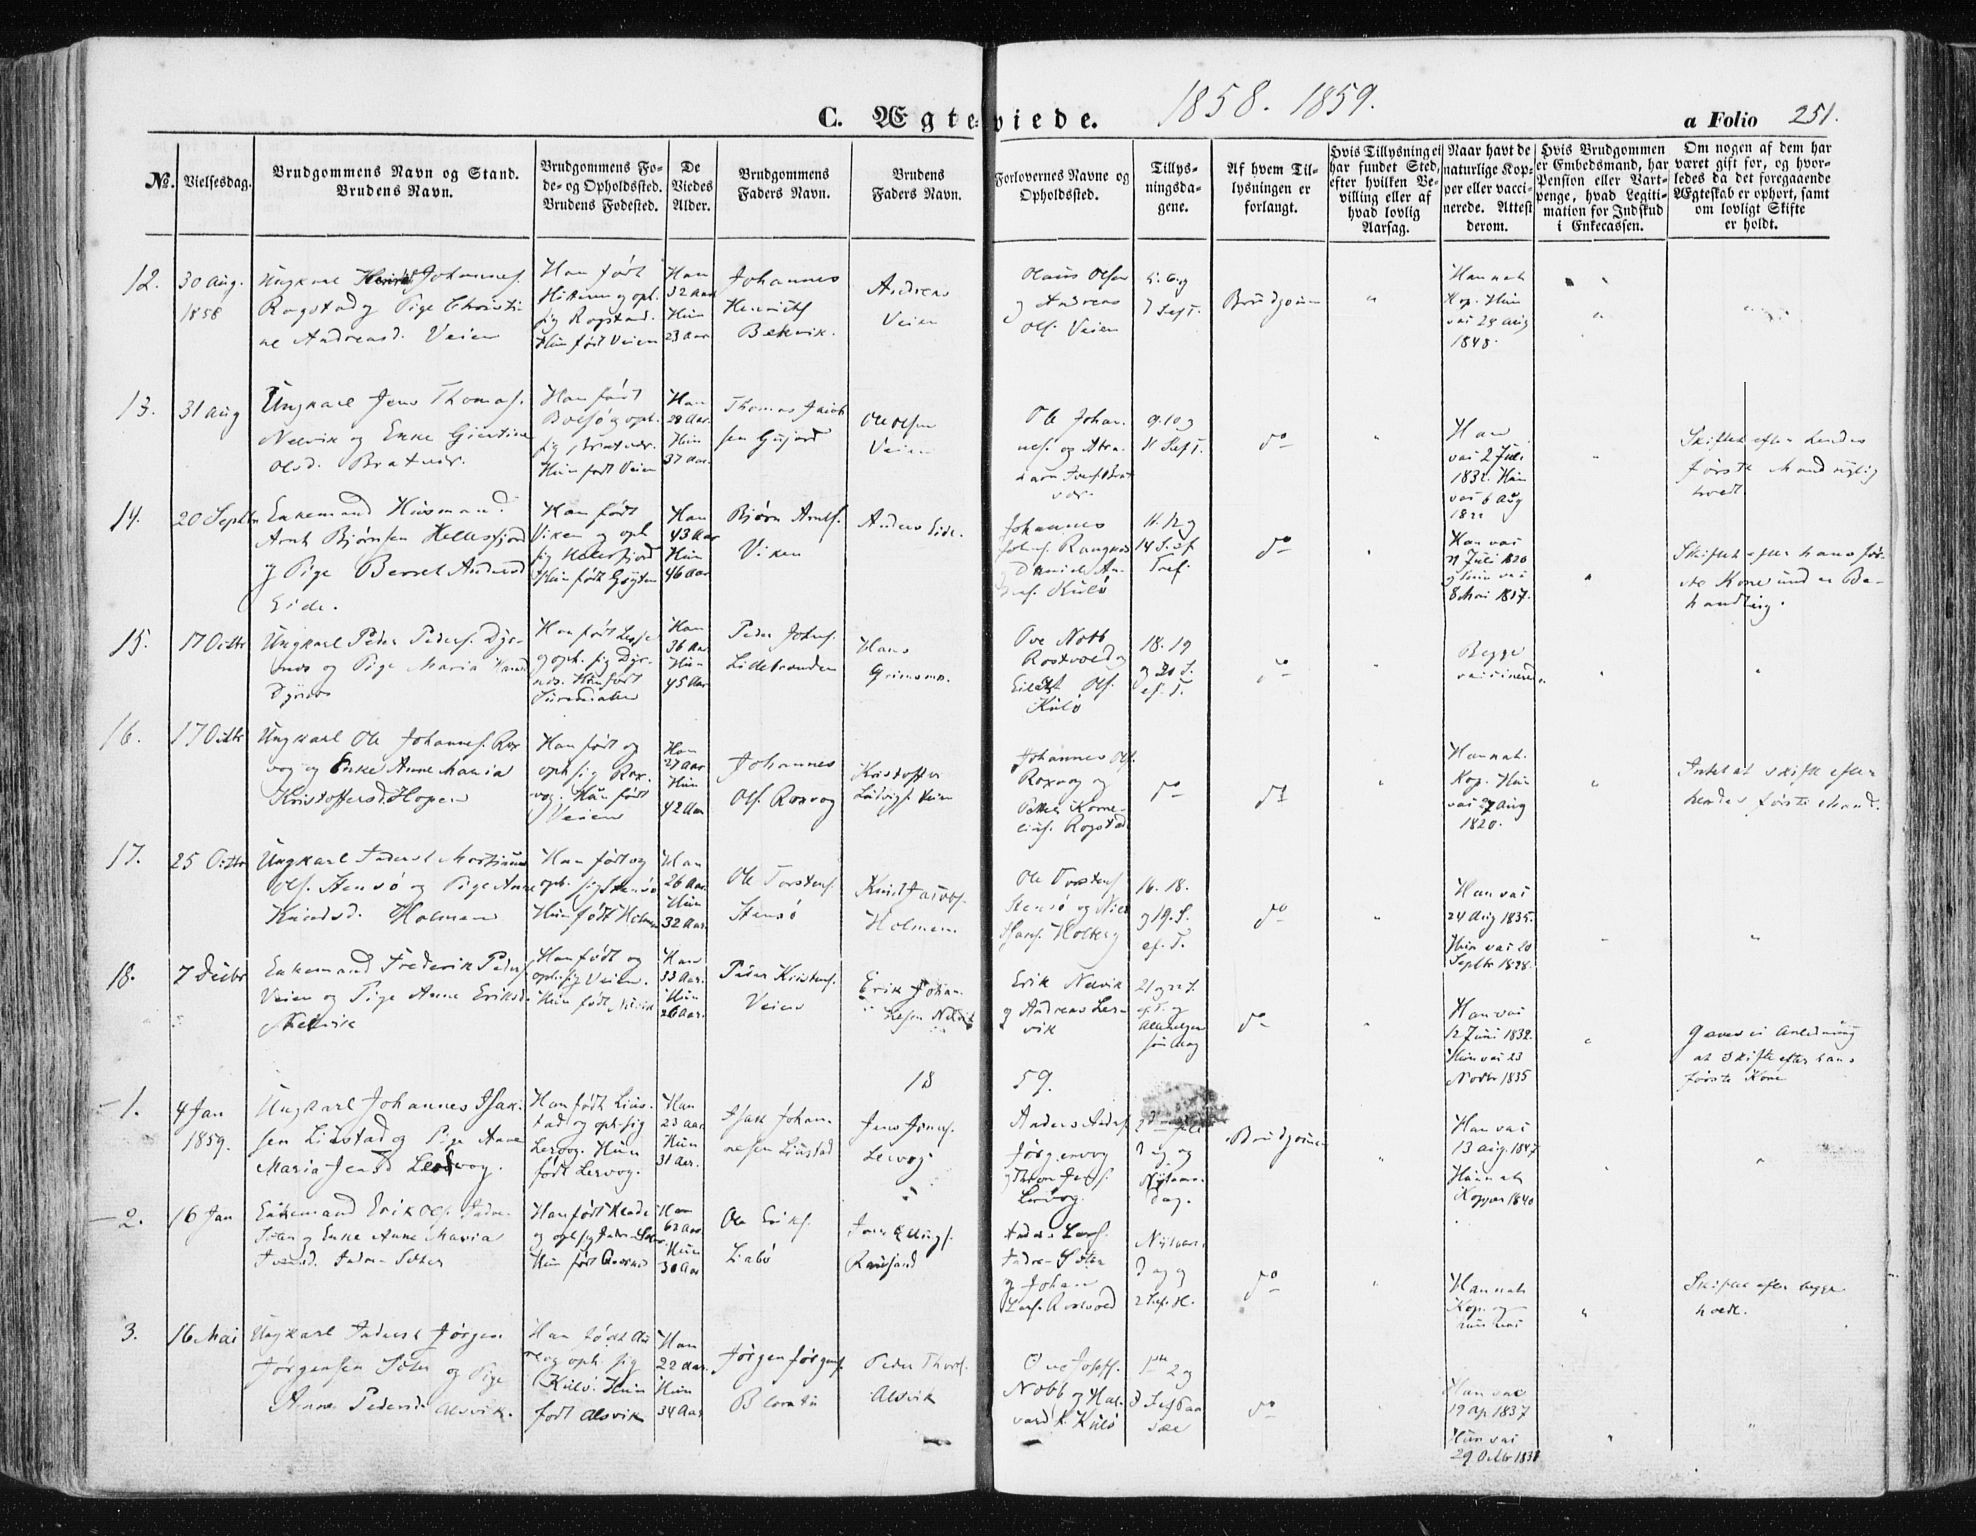 1858. 1859.
C. Ægteviede.
a Folio 251.
№.
Vielsesdag.
Brudgommens Navn og Stand.
Brudens Navn.
Brudgommens Fo-
de- og Opholdssted.
Brudens Fødested.
De
Viedes
Alder.
Brudgommens
Faders Navn.
Brudens
Faders Navn.
Forlovernes Navne og
Opholdssted.
Tillys-
ningsda-
gene.
Af hvem Til-
lysningen er
forlangt.
Hvis Tillysning ei
har fundet Sted,
efter hvilken Be-
villing eller af
hvad lovlig
Aarsag.
Naar havt de
naturlige Kop-
per eller vacci-
nerede. Attest
derom.
Hvis Brudgommen
er Embedsmand, har
Pension eller Vart-
penge, hvad Legiti-
mation for Indskud
i Enkecassen.
Om nogen af dem har
været gift før, og hvor-
ledes da det foregaaende
Ægteskab er ophørt, samt
om lovligt Skifte
er holdt.
12.
30 Aug.
1858
Ungkarl Johannes.
Rogstad og Pige Christi-
ne Andreasd. Veien
Han født
og oph.
sig Rogstad.
Hun født Veien
Han
32 Aar
Hun
23 Aar
Johannes
Henrichs.
Bekvik.
Andreas
Veien
Olaus Olsen
og Andreas
Ols. Veien
5. 6. og
7 Sept.
Brudgom
Han nat.
Kop. Hun
vac 29 Aug
1848.
13.
31 Aug
Ungkarl Jens Thomas.
Nelvik og Enke Giertine
Olsd. Bratvær.
Han født
Bolsø og oph.
sig Bratvær.
Hun født Veien
Han
28 Aar.
Hun
37 Aar.
Thomas Jacob
sen
Ole Olsen
Veien
Ole Johan-
nes. og Abra-
ham
vær.
9. 10 og
11 Sept.
do
Han
vac 2 Juli
1832. Hun
vac 6 Aug
Skiftet efter hendes
første Mand nylig
hvedt.
14.
20 Septbr
Enkemand Husmand
Arnt Bjørnsen Hellesfjord
og Pige Berret Andersd
Eide.
Han født
Viken og oph
sig Hellesfjord
Hun født
Han
43 Aar
Hun
46 Aar
Bjørn Arnts.
Viken
Anders Eide.
Johannes
Johns.
Kulø
11. 12 og
14 S. ef
Tref.
do
Han vac
Juli 1820
og Hun vac
8 Mai 1817.
Skiftet efter hans før-
ste Kone under Be-
handling.
15.
17 Octbr
Ungkarl Peder Peders. Dyr-
næs og Pige Maria Hansd
Dyrnæs
Han født
og oph. sig Dyr-
næs. Hun født
Surendalen
Han
36 Aar
Hun
45 Aar
Peder Johns.
Hans
Ove Nobb
Rostvold og
Ols.
Kulø
18. 19
og 20 S.
ef. T.
do
Begge
vaccinered
16.
17 Octbr
Ungkarl Ole Johannes. Rox-
vog og Enke Anne Maria
Kristoffersd. Hopen
Han født og
oph. sig Rox-
vog. Hun født
Veien
Han
27 Aar
Hun
42 Aar
Johannes
Ols. Roxvog
Kristoffer
Ludvigs. Veien
Johannes Ols.
Roxvog og
Peder Korne-
lius. Rogstad
do
do
Han nat.
Kop. Hun
vac 27 Aug
1820.
Intet at skifte efter
hendes første Mand.
17.
25 Octbr
Ungkarl Inderst Mortinus
Ols. Stensø og Pige Anne
Knudsd. Holmen
Han født og
oph. sig Stensø
Hun født Holmen
Han
26 Aar.
Hun
32 Aar.
Ole Torstens.
Stensø
Knud Jacobs.
Holmen
Ole Torstens
Stensø og Niels
Hans. Holberg
16. 18.
og 19. S.
ef. T.
do
Han vac
24 Aug 1835.
Hun vac 20
Septbr 1828.
18.
7 Decbr
Enkemand Frederik Peders.
Veien og Pige Anne Eriksd
Nelvik
Han født og
oph. sig Veien.
Hun født Nelvik
Han
33 Aar.
Hun
26 Aar.
Peder Kristens.
Veien
Erik Johan-
nesen Nelvik
Erik Nelvik
og Andreas Ler-
vik
21 og 22 S.
ef. T. og
Allehelgen
søndag
do
Han vac
12 Juni 1832.
Hun vac 23
Novbr 1835
Gaves ei Anledning
at skifte efter hans
første Kone
18 59.
1.
4 Jan
1859.
Ungkarl Johannes Isak-
sen Liustad og Pige Anne
Maria Jensd Lervog.
Han født Lius-
tad og oph. sig
Lervog. Hun
født Lervog.
Han
23 Aar.
Hun
31 Aar.
Isak Johan-
nesen Liustad
Jens Jens.
Lervog
Anders Anders.
Jørgenvog
Jens.
Lervog.
2den Jule
dag og
Nytaars-
dag.
Brudgommen
Han vac
13 Aug. 1847
Hun nat.
Kopper 1840
2.
16 Jan
Enkemand Erik Ols. Indre-
Seter og Enke Anne Maria
Indre-Seter
Han født
og oph. sig Indre-Seter
Hun født
Han
62 Aar
Hun
30 Aar
Ole Eriks.
Liabø
Ellings.
Rausand
Anders Lars.
Indre-Seter
og Johan
Lars. Rostvold
Nytaars-
dag og
2 S. ef. H.
do
Han nat.
Kop. og
hun vac
Skiftet efter begge
hvedt.
3.
16 Mai
Ungkarl Inderst Jørgen
Jørgensen Seter og Pige
Anne Pedersd. Alsvik.
Han født
og oph. sig
Kulø. Hun
født Alsvik
Han
22 Aar.
Hun
34 Aar
Jørgen Jørgens.
Peder Thores.
Alsvik
Ove Joseps.
Nobb og Hal-
vard K. Kulø
1ste 2 og
3 S. ef Paa
ske
do
Han vac
19 Ap 1837
Hun vac
29 Octbr 1838